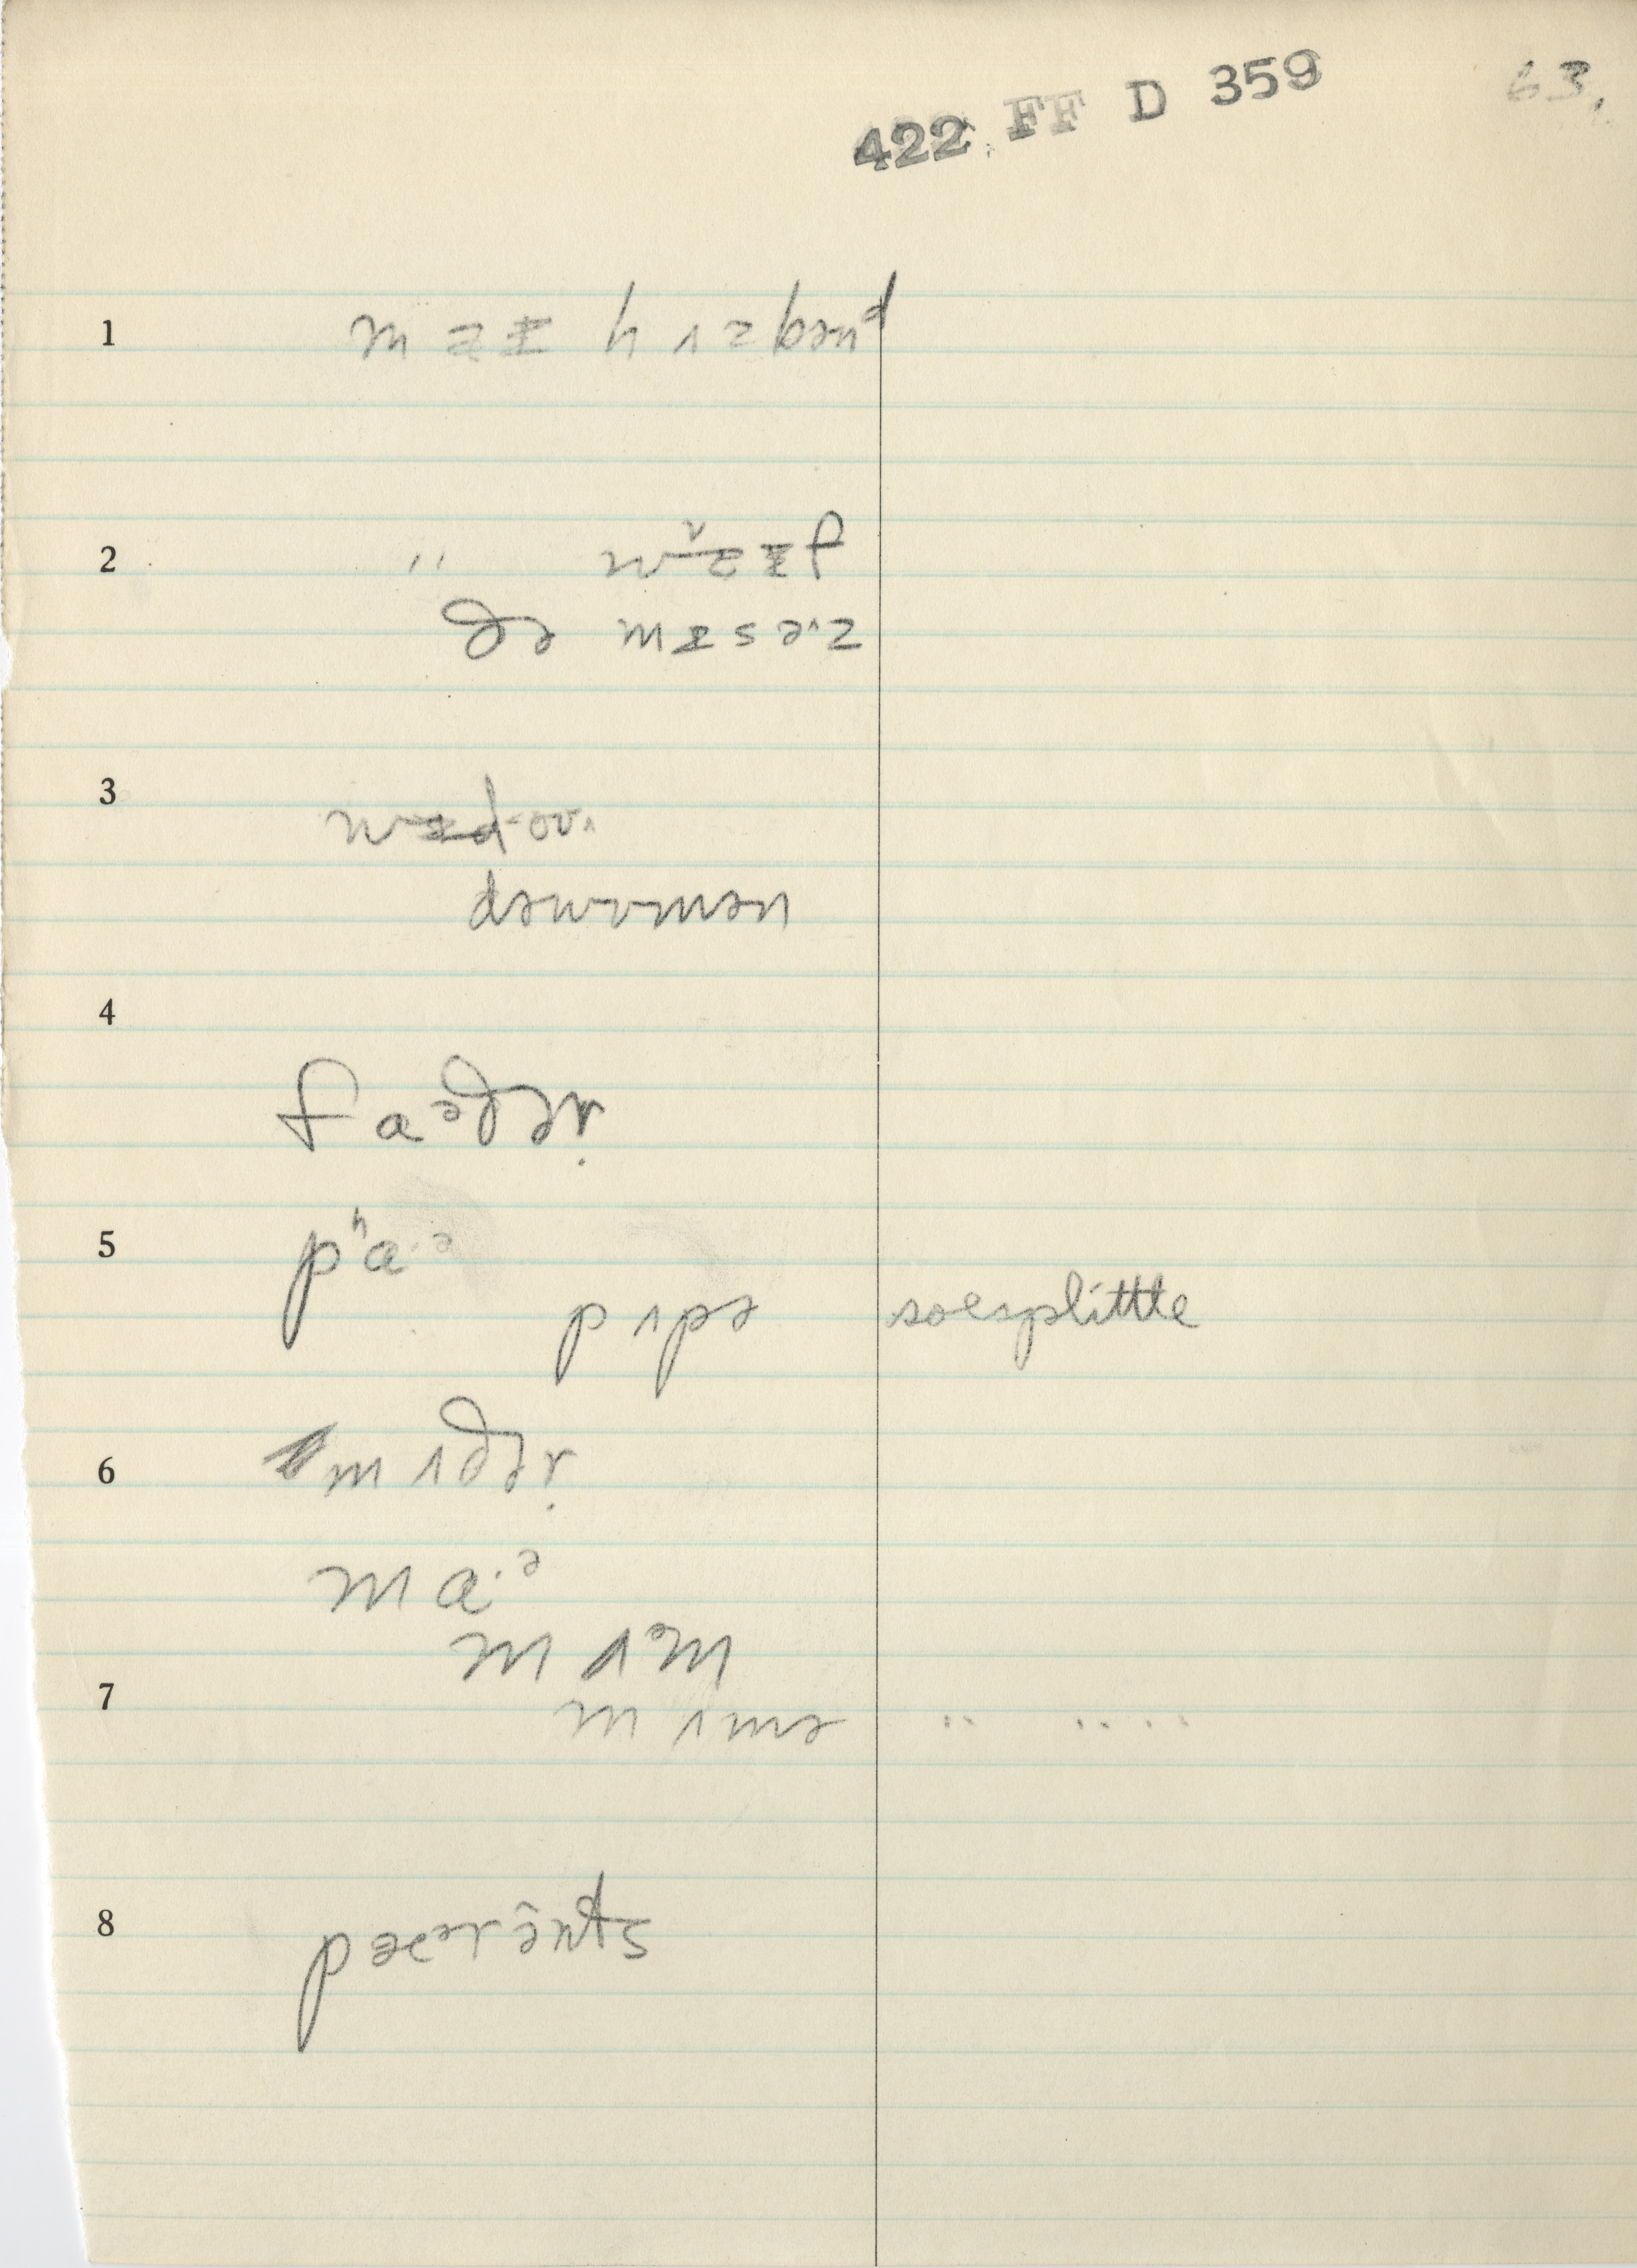 422 FF D 359 63.
1 m aɪ h ʌ z bən d
2 ″ w a ɪ f
ðə mɪsəˑz
3 wɪdoʊ
dəwʊmən
4
f a ə ð ə r
5 pʰaˑə
pʌpə soesplittle
6 m ʌ ð ə r
m aˑə
m ʌə m
7 m ʌmə ‥ ‥ ‥
8 pæərənts